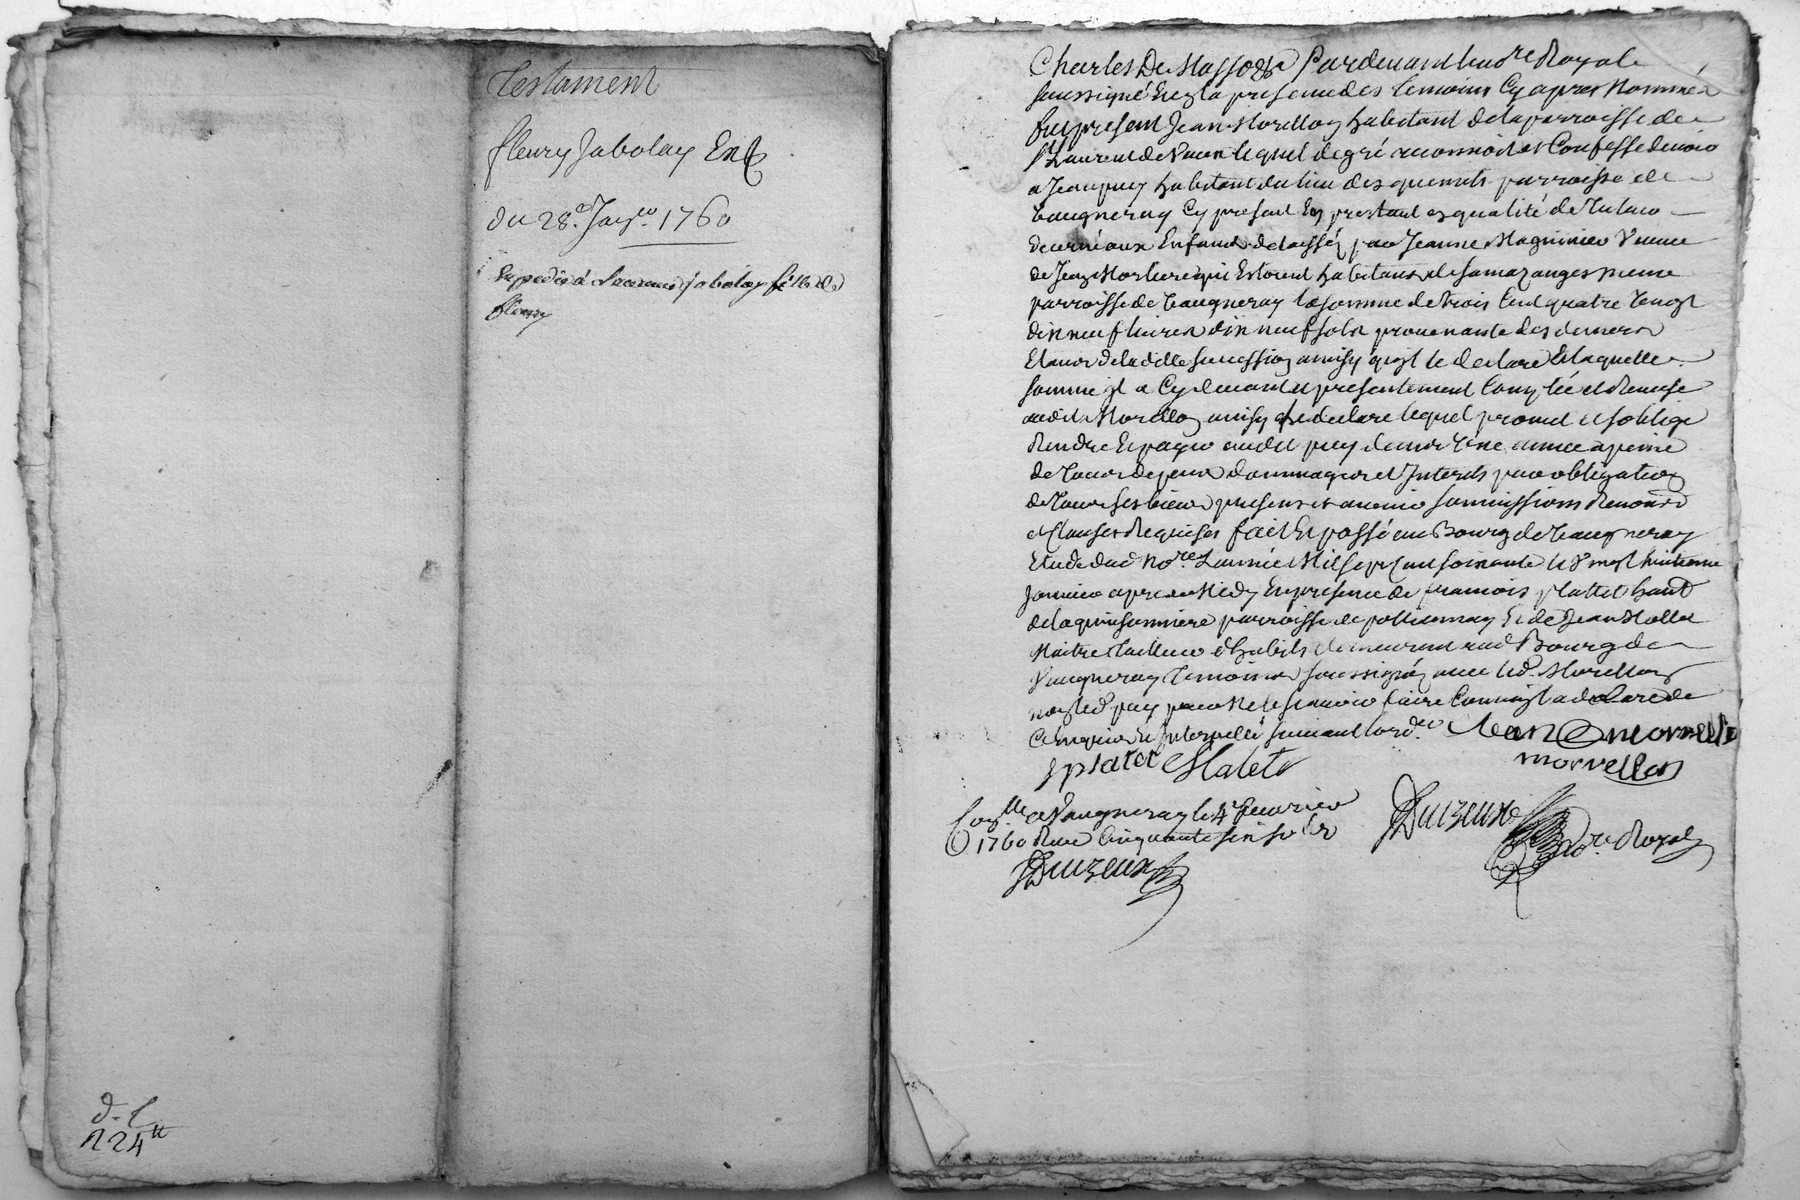 Testament
fleury Jabolay
du 28.e Janv.er 1760
Expedié à Jabolay fils de
fleury
d. l.
224 tt
Charles De Masso Pardevant le no.re Royal
soussigné et En la presence des temoins Cy apres Nommés
fut present Jean Morellon habitant de la parroisse de
St Laurent de Vaux lequel de gré reconnoit et Confesse devoir
a Jean puy habitant du lieu des parroisse de
Vaugneray Cy present En personne En qualité de Tuteur
decerné aux Enfans delaissés par Jeanne Magninier Veuve
de Jean qui Estoient habitans de mesme
parroisse de Vaugneray la somme de trois Cent quatre vingt
dix neuf livres dix neuf sols provenante des deniers
de ladite succession ainsy qu'il le declare Et laquelle
somme il a Cy devant et presentement Comptée et Remise
audit Morellon ainsy declare lequel promet et s'oblige
Rendre Et payer audit puy dans Une année a peine
de tous depens dommages et Interets par obligation
de tous ses biens presens et avenir soumissions Renon.on
et Clauses Requises fait Et passé au Bourg de Vaugneray
Etude dud. No.re L'année Mil sept Cent soixante le Vingt huitieme
Janvier apres Midy En presence de francois platet hant
de la parroisse de pollionnay Et de Jean Mallet
Maitre tailleur d'habits demeurant aud. Bourg de
Vaugneray temoins soussignés avec led. Morellon
non led. puy pour ne le scavoir faire Comme il a declaré de
Ce Enquis Et Interpellé suivant l'ord.ce Jean morvellon
morvellon
f platet Malet
Con.llé a Vaugneray le 4.e fevrier
1760 Recu Cinquante six sols
Duizeux
Duizeux
No.re Royal